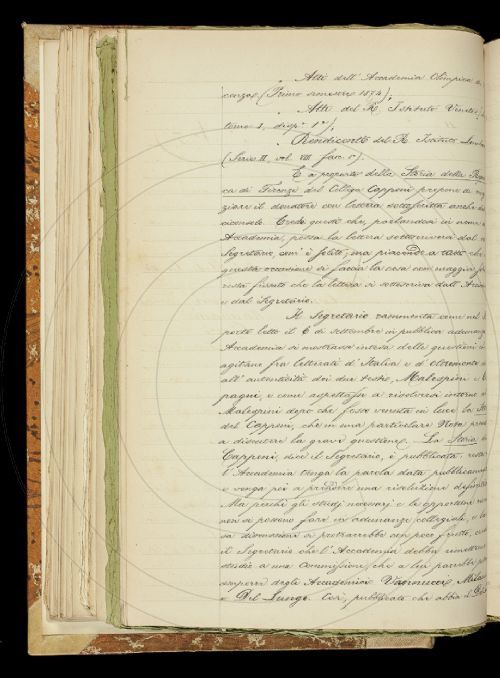 Atti dell'Accademia Olimpica di
cenza (Primo semestre 1874),
Atti del R. Istituto Veneto
tomo I, disp.
Rendiconti del R. Istituto Lom
(Serie II, vol. VII fasc.
E a proposito della Storia della Rep
ca di Firenze del Collega Capponi propone di
ziare il donatore con lettera sottoscritta anche
ciconsolo. Crede questi che, parlandosi in nome
Accademia, possa la lettera sottoscriversi dal
Segretario, com'è solito; ma piacendo a tutti che
questa occasione si faccia la cosa con maggior
resta fissato che la lettera si sottoscriva dall'Arci
e dal Segretario.
Il Segretario rammenta come nel
porto letto il 6 di settembre in pubblica adunanza
Accademia si mostrasse intesa delle questioni
agitano fra letterati d'Italia e d'oltremonte
all'autenticità dei due testi, Malespini e
pagni, e come aspettasse a risolversi intorno
Malespini dopo che fosse venuta in luce la
del Capponi, che in una particolare Nota
a discutere la grave questione. La Storia
Capponi, dice il Segretario, è pubblicata: resta
l'Accademia tenga la parola data pubblicamente
e venga poi a prendere una risoluzione
Ma perché gli studj necessarj e le opportune
non si possono fare in adunanze collegiali, e
sa discussione si protrarrebbe con poco frutto,
il Segretario che l'Accademia debba
studio a una Commissione, che a lui parrebbe
comporre degli Accademici Vannucci, Mila
e Del Lungo. Così, pubblicato che abbia il